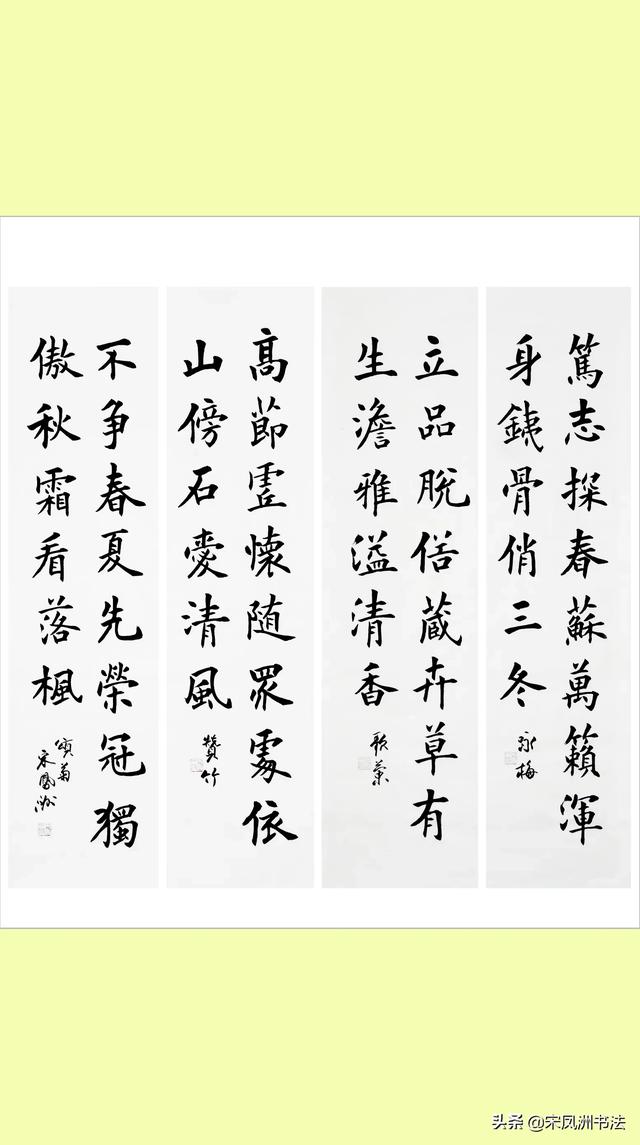 篤志探春蘇萬籟渾
身銕骨俏三冬
詠梅
立品脱俗蔵卉草有
生澹雅溢清香
歌蘭
髙節虛懷随眾處依
山傍石愛清風
贊竹
不争春夏先榮冠獨
傲秋霜看落楓
頌菊
宋鳳洲
头条 @宋凤洲书法